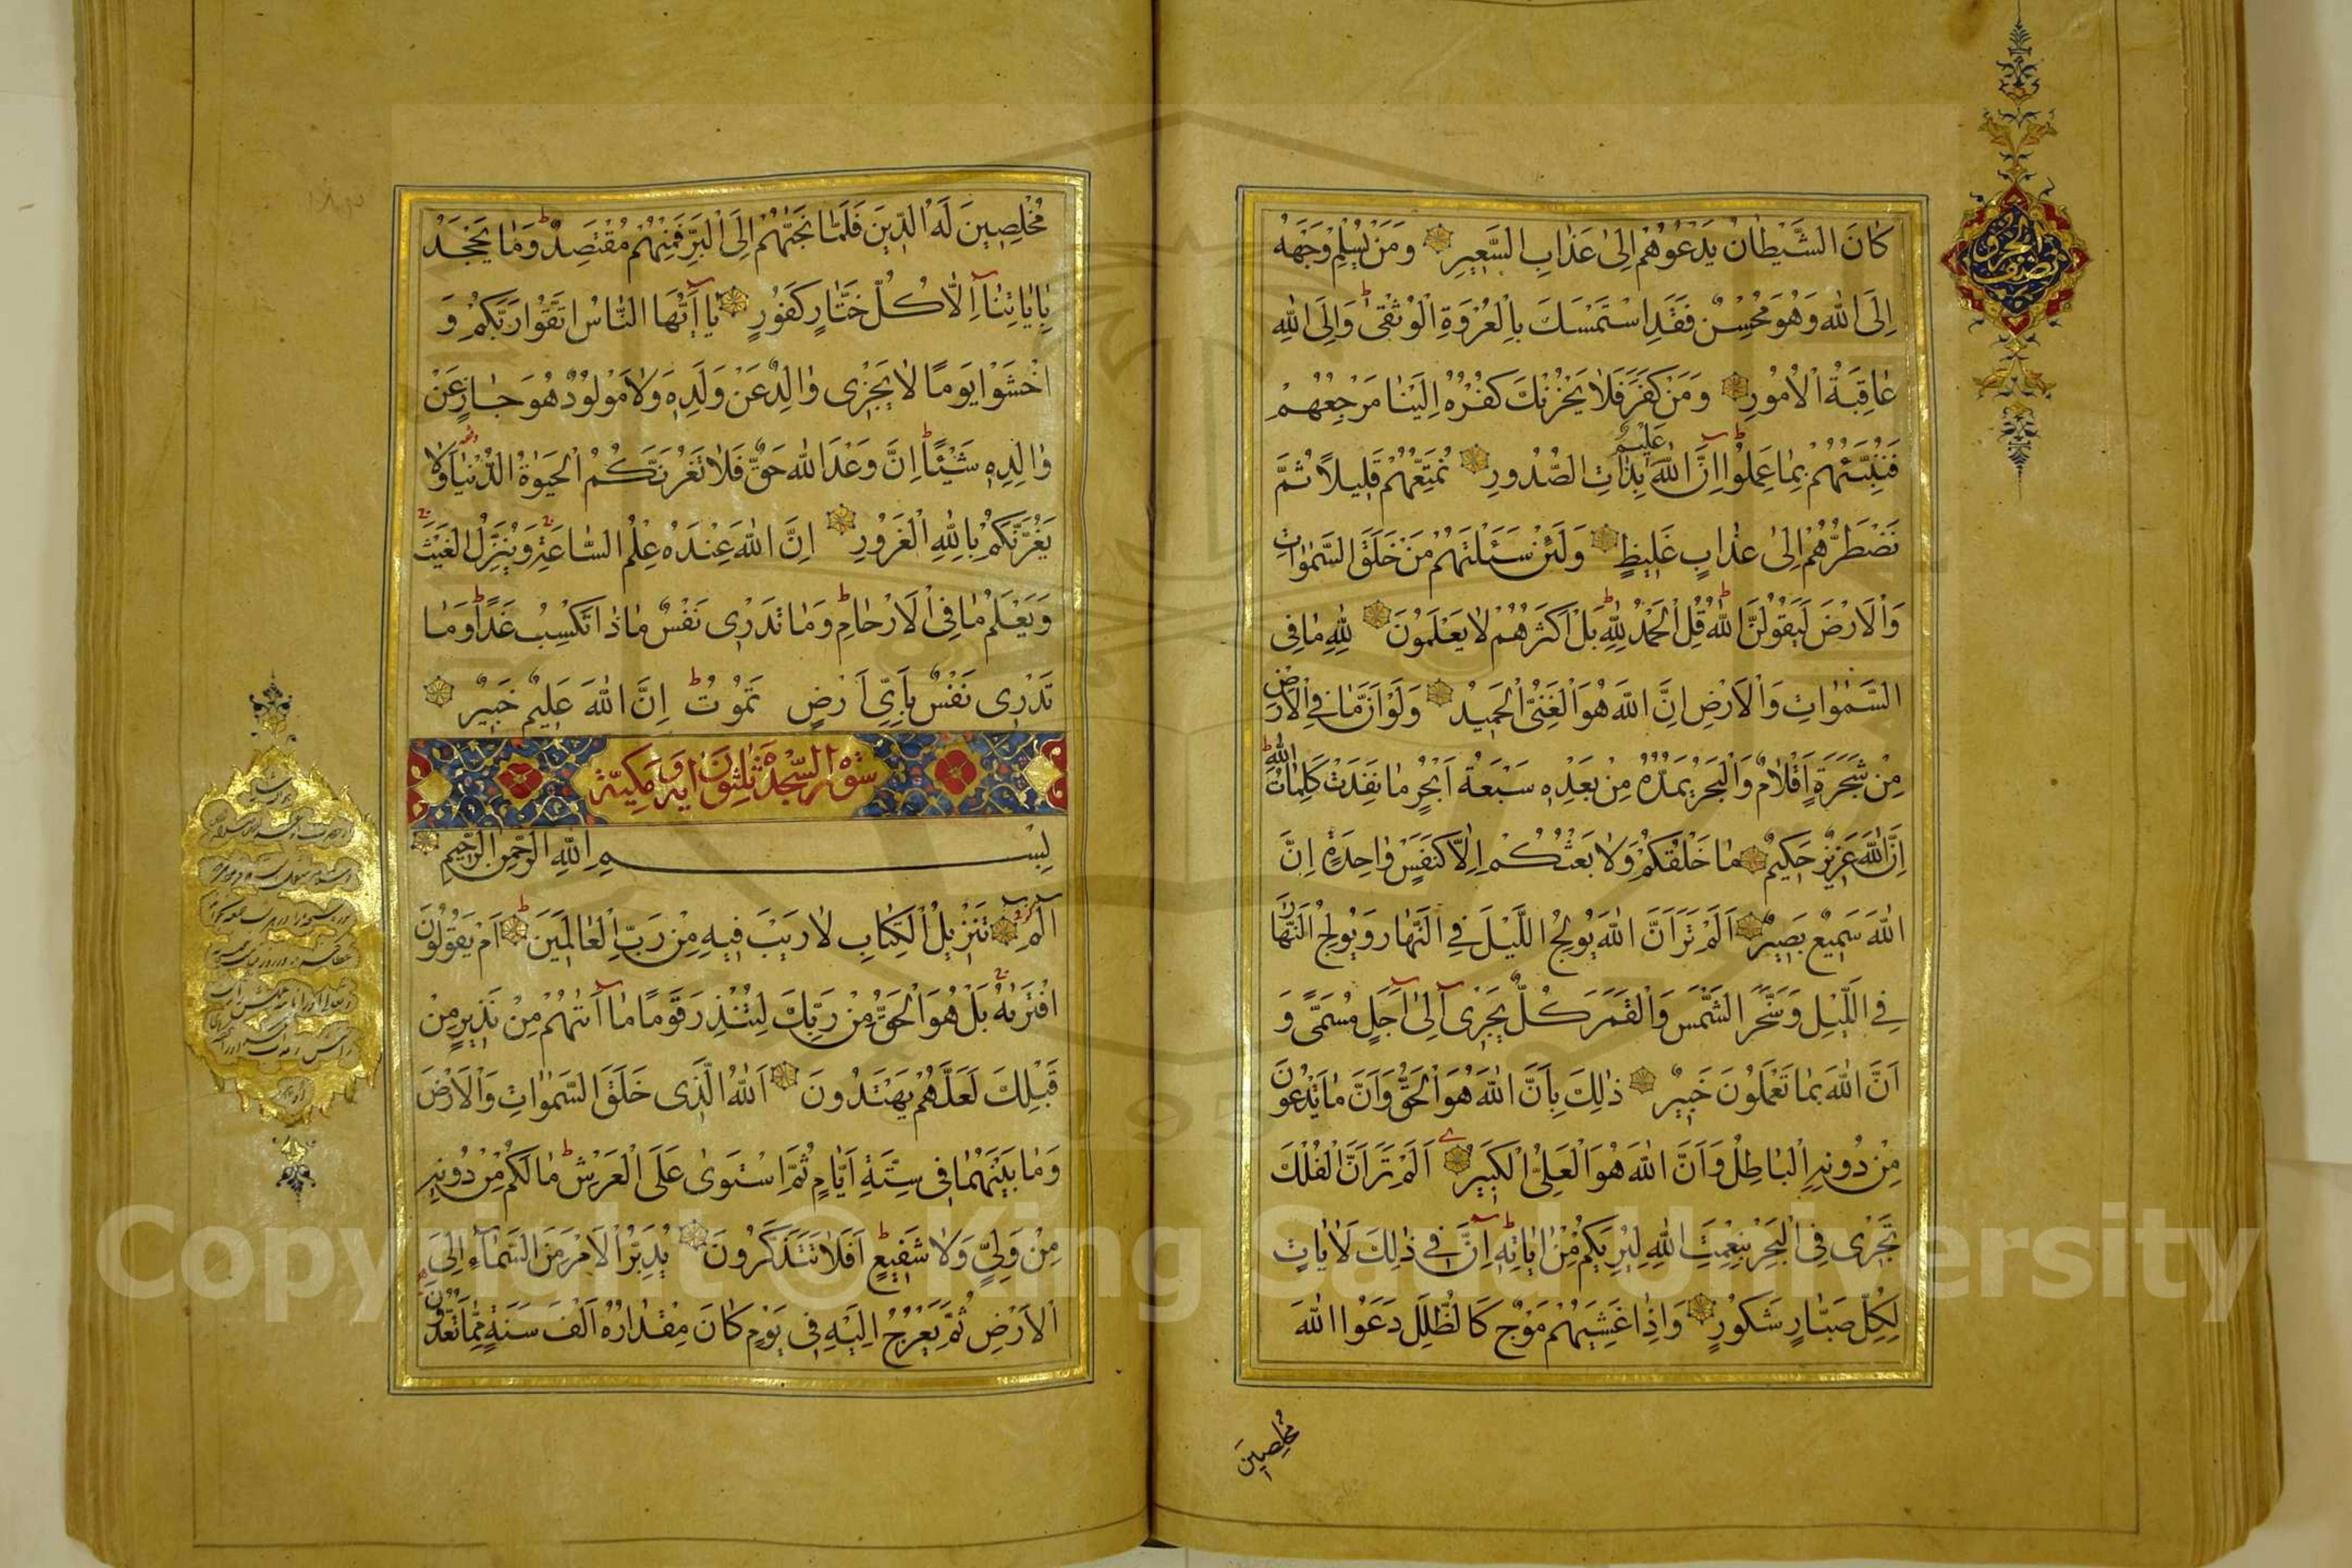 كَانَ الشَّيْطَانُ يَدْعُوهُمْ اِلىٰ عَذَابِ السَّعِيرِ وَمَنْ يُسْلِمْ وَجْهَهُ
اِلَى اللهِ وَهُوَ مُحْسِنٌ فَقَدِ اسْتَمْسَكَ بِالْعُرْوَةِ الْوُثْقىٰ ط وَاِلَى اللهِ
عَاقِبَةُ الْاُمُورِ وَمَنْ كَفَرَ فَلَا يَحْزُنْكَ كُفْرُهُ اِلَيْنَا مَرْجِعُهُمْ
فَنُنَبِّئُهُمْ بِمَا عَمِلُوا ط اِنَّ اللهَ عَلِيمٌ بِذَاتِ الصُّدُورِ نُمَتِّعُهُمْ قَلِيلاً ثُمَّ
نَضْطَرُّهُمْ اِلىٰ عَذَابٍ غَلِيظٍ وَلَئِنْ سَئَلْتَهُمْ مَنْ خَلَقَ السَّمٰوَاتِ
وَالْاَرْضَ لَيَقُولُنَّ اللهُ ط قُلِ الْحَمْدُ لِلّٰهِ ط بَلْ اَكْثَرُهُمْ لَا يَعْلَمُونَ لِلّٰهِ مَا فِى
السَّمٰوَاتِ وَالْاَرْضِ اِنَّ اللهَ هُوَ الْغَنِىُّ الْحَمِيدُ وَلَوْ اَنَّ مَا فِى الْاَرْضِ
مِنْ شَجَرَةٍ اَقْلَامٌ وَالْبَحْرُ يَمُدُّهُ مِنْ بَعْدِهِ سَبْعَةُ اَبْحُرٍ مَا نَفِدَتْ كَلِمَاتُ اللهِ ط
اِنَّ اللهَ عَزِيزٌ حَكِيمٌ مَا خَلْقُكُمْ وَلَا بَعْثُكُمْ اِلَّا كَنَفْسٍ وَاحِدَةٍ اِنَّ
اللهَ سَمِيعٌ بَصِيرٌ اَلَمْ تَرَ اَنَّ اللهَ يُولِجُ اللَّيْلَ فِى النَّهَارِ وَيُولِجُ النَّهَارَ
فِى اللَّيْلِ وَسَخَّرَ الشَّمْسَ وَالْقَمَرَ كُلٌّ يَجْرِى اِلىٰ اَجَلٍ مُسَمًّى وَ
اَنَّ اللهَ بِمَا تَعْمَلُونَ خَبِيرٌ ذٰلِكَ بِاَنَّ اللهَ هُوَ الْحَقُّ وَاَنَّ مَا يَدْعُونَ
مِنْ دُونِهِ الْبَاطِلُ وَاَنَّ اللهَ هُوَ الْعَلِىُّ الْكَبِيرُ اَلَمْ تَرَ اَنَّ الْفُلْكَ
تَجْرِى فِى الْبَحْرِ بِنِعْمَتِ اللهِ لِيُرِيَكُمْ مِنْ اٰيَاتِهِ ط اِنَّ فِى ذٰلِكَ لَاٰيَاتٍ
لِكُلِّ صَبَّارٍ شَكُورٍ وَاِذَا غَشِيَهُمْ مَوْجٌ كَالظُّلَلِ دَعَوُا اللهَ
مُخْلِصِينَ
مُخْلِصِينَ لَهُ الدِّينَ فَلَمَّا نَجّٰيهُمْ اِلَى الْبَرِّ فَمِنْهُمْ مُقْتَصِدٌ ط وَمَا يَجْحَدُ
بِاٰيَاتِنَا اِلَّا كُلُّ خَتَّارٍ كَفُورٍ يَا اَيُّهَا النَّاسُ اتَّقُوا رَبَّكُمْ وَ
اخْشَوْا يَوْمًا لَا يَجْزِى وَالِدٌ عَنْ وَلَدِهِ وَلَا مَوْلُودٌ هُوَ جَازٍ عَنْ
وَالِدِهِ شَيْئًا ط اِنَّ وَعْدَ اللهِ حَقٌّ فَلَا تَغُرَّنَّكُمُ الْحَيٰوةُ الدُّنْيَا وَلَا
يَغُرَّنَّكُمْ بِاللهِ الْغَرُورُ اِنَّ اللهَ عِنْدَهُ عِلْمُ السَّاعَةِ وَيُنَزِّلُ الْغَيْثَ
وَيَعْلَمُ مَا فِى الْاَرْحَامِ ط وَمَا تَدْرِى نَفْسٌ مَاذَا تَكْسِبُ غَدًا ط وَمَا
تَدْرِى نَفْسٌ بِاَىِّ اَرْضٍ تَمُوتُ ط اِنَّ اللهَ عَلِيمٌ خَبِيرٌ
سورة السجدة ثلثون اية ومكية
بِسْمِ اللهِ الرَّحْمٰنِ الرَّحِيمِ
الٓمٓ تَنْزِيلُ الْكِتَابِ لَا رَيْبَ فِيهِ مِنْ رَبِّ الْعَالَمِينَ ط اَمْ يَقُولُونَ
افْتَرٰيهُ بَلْ هُوَ الْحَقُّ مِنْ رَبِّكَ لِتُنْذِرَ قَوْمًا مَا اَتٰيهُمْ مِنْ نَذِيرٍ مِنْ
قَبْلِكَ لَعَلَّهُمْ يَهْتَدُونَ اَللهُ الَّذِى خَلَقَ السَّمٰوَاتِ وَالْاَرْضَ
وَمَا بَيْنَهُمَا فِى سِتَّةِ اَيَّامٍ ثُمَّ اسْتَوىٰ عَلَى الْعَرْشِ ط مَا لَكُمْ مِنْ دُونِهِ
مِنْ وَلِىٍّ وَلَا شَفِيعٍ ط اَفَلَا تَتَذَكَّرُونَ يُدَبِّرُ الْاَمْرَ مِنَ السَّمَاءِ اِلَى
الْاَرْضِ ثُمَّ يَعْرُجُ اِلَيْهِ فِى يَوْمٍ كَانَ مِقْدَارُهُ اَلْفَ سَنَةٍ مِمَّا تَعُدُّونَ
Copyright © King Saud University
1957